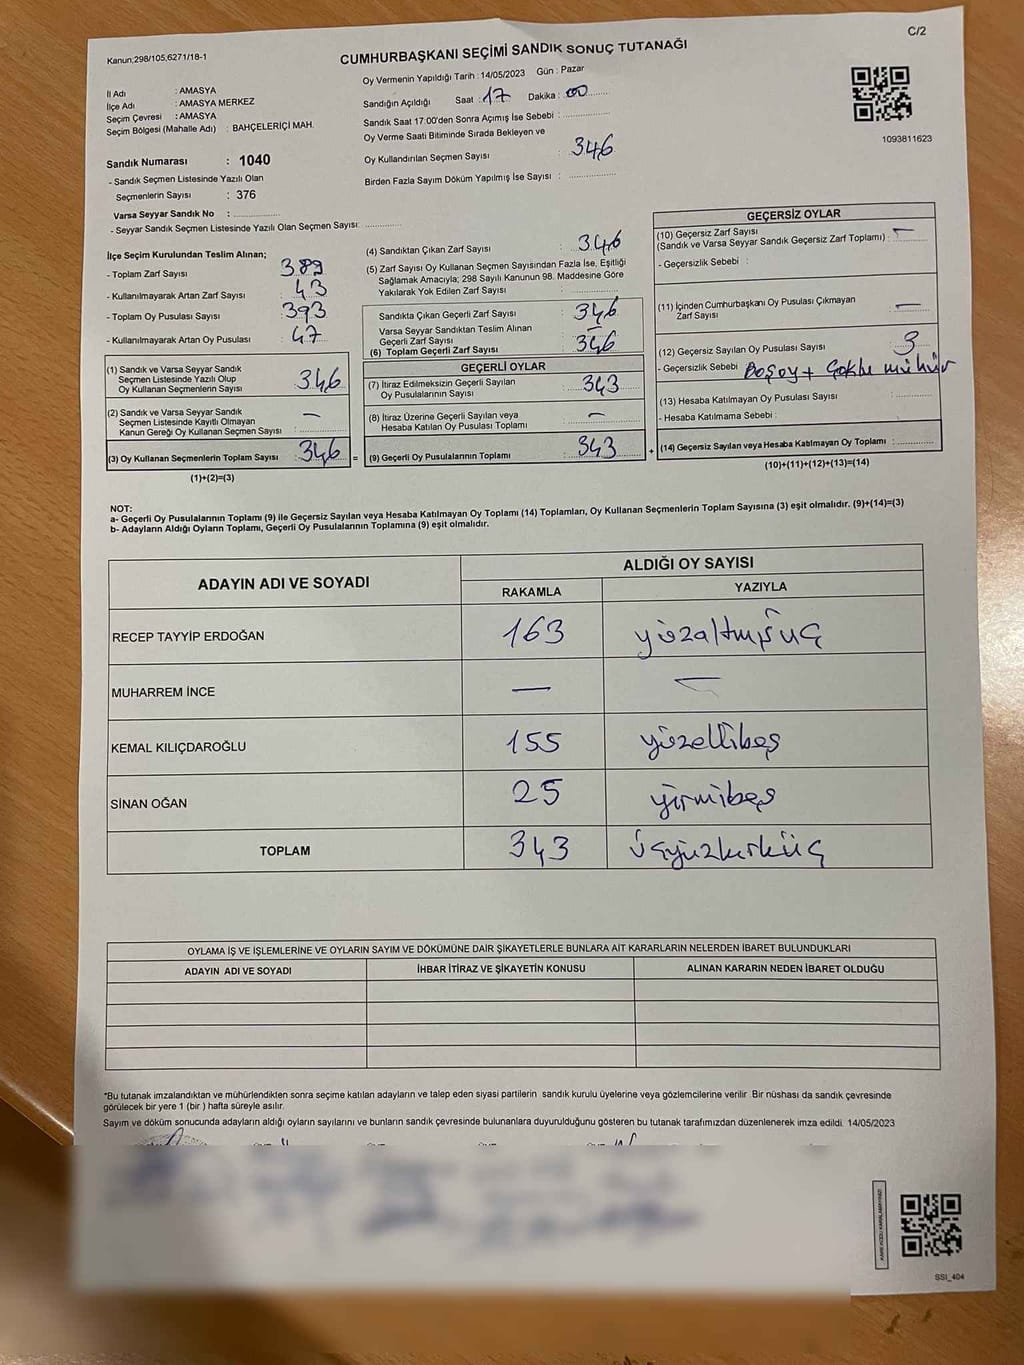 C/2
Kanun:298/105,6271/18-1
CUMHURBAŞKANI SEÇİMİ SANDIK SONUÇ TUTANAĞI
Oy Vermenin Yapıldığı Tarih : 14/05/2023 Gün : Pazar
İl Adı : AMASYA
İlçe Adı : AMASYA MERKEZ
Seçim Çevresi : AMASYA
Seçim Bölgesi (Mahalle Adı) : BAHÇELERİÇİ MAH.
Sandığın Açıldığı Saat : 17 Dakika : 00
Sandık Saat 17.00'den Sonra Açımış İse Sebebi :
Oy Verme Saati Bitiminde Sırada Bekleyen ve
Oy Kullandırılan Seçmen Sayısı : 346
Birden Fazla Sayım Döküm Yapılmış İse Sayısı :
1093811623
Sandık Numarası : 1040
- Sandık Seçmen Listesinde Yazılı Olan
Seçmenlerin Sayısı : 376
Varsa Seyyar Sandık No :
- Seyyar Sandık Seçmen Listesinde Yazılı Olan Seçmen Sayısı:
İlçe Seçim Kurulundan Teslim Alınan;
- Toplam Zarf Sayısı : 389
- Kullanılmayarak Artan Zarf Sayısı : 43
- Toplam Oy Pusulası Sayısı : 393
- Kullanılmayarak Artan Oy Pusulası : 47
(1) Sandık ve Varsa Seyyar Sandık
Seçmen Listesinde Yazılı Olup
Oy Kullanan Seçmenlerin Sayısı : 346
(2) Sandık ve Varsa Seyyar Sandık
Seçmen Listesinde Kayıtlı Olmayan
Kanun Gereği Oy Kullanan Seçmen Sayısı : —
(3) Oy Kullanan Seçmenlerin Toplam Sayısı : 346 =
(1)+(2)=(3)
(4) Sandıktan Çıkan Zarf Sayısı : 346
(5) Zarf Sayısı Oy Kullanan Seçmen Sayısından Fazla İse, Eşitliği
Sağlamak Amacıyla; 298 Sayılı Kanunun 98. Maddesine Göre
Yakılarak Yok Edilen Zarf Sayısı :
Sandıkta Çıkan Geçerli Zarf Sayısı : 346
Varsa Seyyar Sandıktan Teslim Alınan
Geçerli Zarf Sayısı : —
(6) Toplam Geçerli Zarf Sayısı : 346
GEÇERLİ OYLAR
(7) İtiraz Edilmeksizin Geçerli Sayılan
Oy Pusulalarının Sayısı : 343
(8) İtiraz Üzerine Geçerli Sayılan veya
Hesaba Katılan Oy Pusulası Toplamı : —
(9) Geçerli Oy Pusulalarının Toplamı : 343 +
GEÇERSİZ OYLAR
(10) Geçersiz Zarf Sayısı
(Sandık ve Varsa Seyyar Sandık Geçersiz Zarf Toplamı) : —
- Geçersizlik Sebebi :
(11) İçinden Cumhurbaşkanı Oy Pusulası Çıkmayan
Zarf Sayısı : —
(12) Geçersiz Sayılan Oy Pusulası Sayısı : 3
- Geçersizlik Sebebi : Boşoy + Çoklu mühür
(13) Hesaba Katılmayan Oy Pusulası Sayısı :
- Hesaba Katılmama Sebebi :
(14) Geçersiz Sayılan veya Hesaba Katılmayan Oy Toplamı :
(10)+(11)+(12)+(13)=(14)
NOT:
a- Geçerli Oy Pusulalarının Toplamı (9) ile Geçersiz Sayılan veya Hesaba Katılmayan Oy Toplamı (14) Toplamları, Oy Kullanan Seçmenlerin Toplam Sayısına (3) eşit olmalıdır. (9)+(14)=(3)
b- Adayların Aldığı Oyların Toplamı, Geçerli Oy Pusulalarının Toplamına (9) eşit olmalıdır.
ADAYIN ADI VE SOYADI ALDIĞI OY SAYISI
RAKAMLA YAZIYLA
RECEP TAYYİP ERDOĞAN 163 yüzaltmışüç
MUHARREM İNCE — —
KEMAL KILIÇDAROĞLU 155 yüzellibeş
SİNAN OĞAN 25 yirmibeş
TOPLAM 343 üçyüzkırküç
OYLAMA İŞ VE İŞLEMLERİNE VE OYLARIN SAYIM VE DÖKÜMÜNE DAİR ŞİKAYETLERLE BUNLARA AİT KARARLARIN NELERDEN İBARET BULUNDUKLARI
ADAYIN ADI VE SOYADI İHBAR İTİRAZ VE ŞİKAYETİN KONUSU ALINAN KARARIN NEDEN İBARET OLDUĞU
*Bu tutanak imzalandıktan ve mühürlendikten sonra seçime katılan adayların ve talep eden siyasi partilerin sandık kurulu üyelerine veya gözlemcilerine verilir. Bir nüshası da sandık çevresinde
görülecek bir yere 1 (bir ) hafta süreyle asılır.
Sayım ve döküm sonucunda adayların aldığı oyların sayılarını ve bunların sandık çevresinde bulunanlara duyurulduğunu gösteren bu tutanak tarafımızdan düzenlenerek imza edildi. 14/05/2023
SSI_404